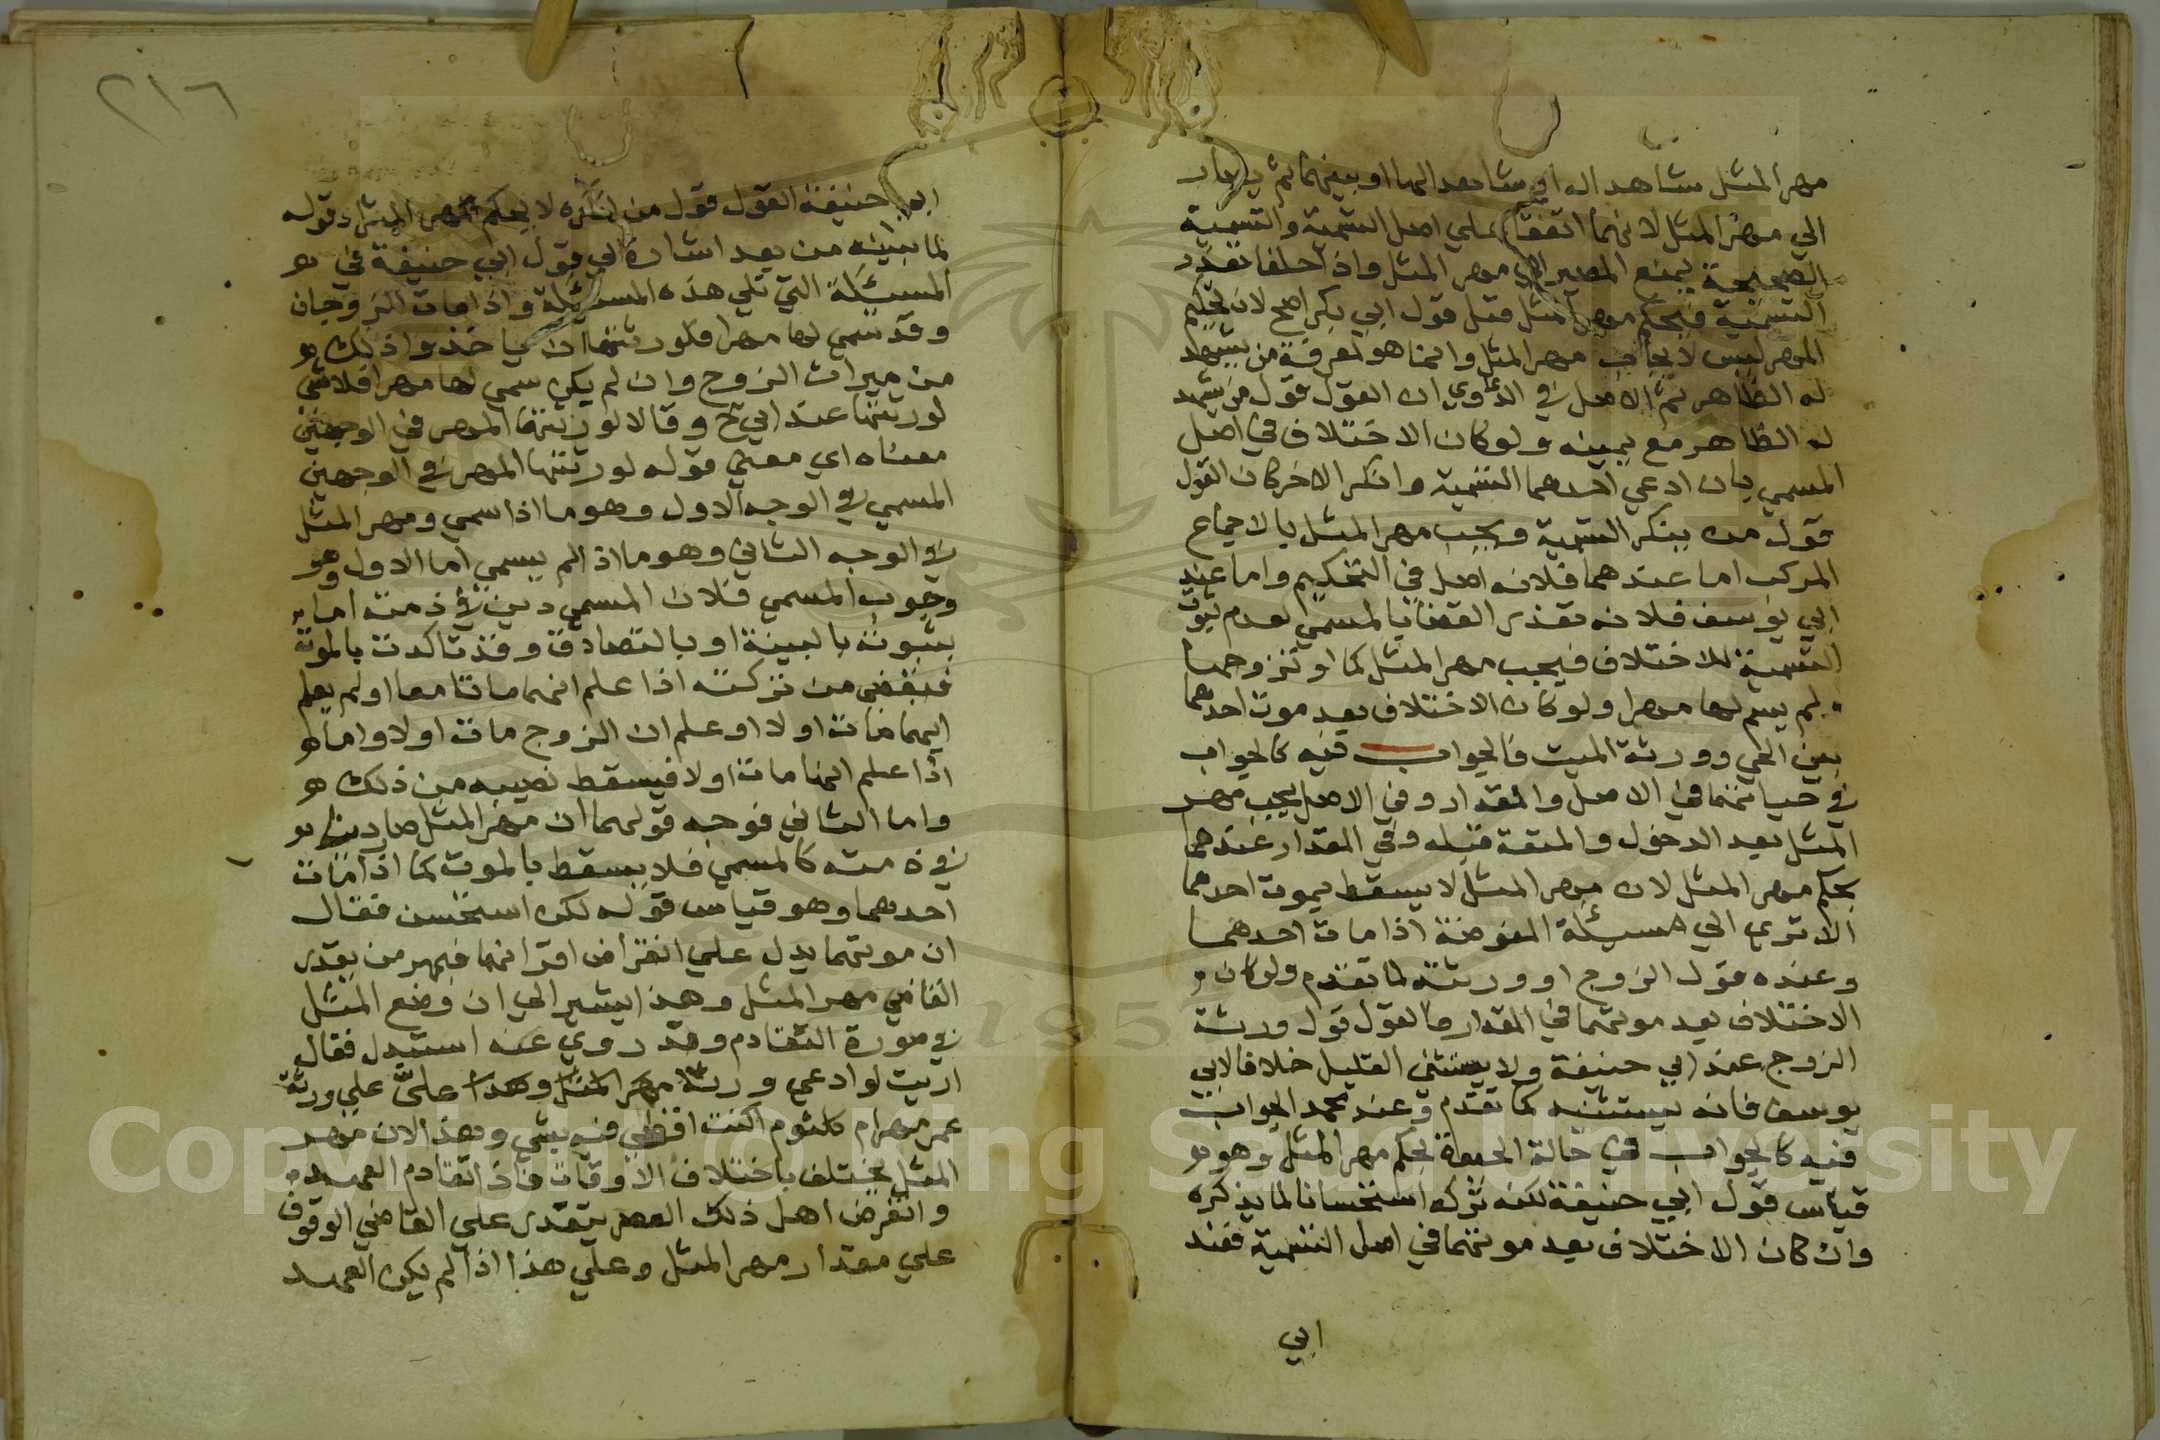 مهر المثل شاهدا له او شاهدا لها او بينهما ثم يصار
الي مهر المثل لانهما اتفقا علي اصل التسمية والتسمية
الصحيحة يمنع المصير الي مهر المثل واذا حلفا تعذر
التسمية فيحكم مهر المثل قيل قول ابي بكر اصح لان تحكيم
المهر ليس لايجاب مهر المثل وانما هو لمعرفة من يشهد
له الظاهر ثم الاصل في الدعاوي ان القول قول من يشهد
له الظاهر مع يمينه ولو كان الاختلاف في اصل
المسمي بان ادعي احدهما التسمية وانكر الاخر كان القول
قول من ينكر التسمية ويجب مهر المثل بالاجماع
المركب اما عندهما فلانه اصل في التحكيم واما عند
ابي يوسف فلانه تعذر القضا بالمسمي لعدم ثبوت
التسمية للاختلاف فيجب مهر المثل كما لو تزوجها
ولم يسم لها مهرا ولو كان الاختلاف بعد موت احدهما
بين الحي وورثة الميت فالجواب فيه كالجواب
في حياتهما في الاصل والمقدار وفي الاصل يجب مهر
المثل بعد الدخول والمتعة قبله وفي المقدار عندهما
يحكم مهر المثل لان مهر المثل لا يسقط بموت احدهما
الا تري الي مسيلة المفوضة اذا مات احدهما
وعنده قول الزوج او ورثته لما تقدم ولو كان
الاختلاف بعد موتهما في المقدار فالقول قول ورثة
الزوج عند ابي حنيفة ولا يستثني القليل خلافا لابي
يوسف فانه يستثنيه كما تقدم وعند محمد الجواب
فيه كالجواب في حالة الحيوة يحكم مهر المثل وهو
قياس قول ابي حنيفة لكنه تركه استحسانا لما يذكره
وان كان الاختلاف بعد موتهما في اصل التسمية فعند
ابي
٢١٦
ابي حنيفة القول قول من انكره لا يحكم مهر المثل وقوله
لما نبينه من بعد اشارة الي قول ابي حنيفة في
المسئلة التي تلي هذه المسئلة واذا مات الزوجان
وقد سمي لها مهرا فلورثتها ان ياخذوا ذلك
من ميراث الزوج وان لم يكن سمي لها مهرا فلا شي
لورثتها عند ابي ح وقالا لورثتها المهر في الوجهين
معناه اي معني قوله لورثتها المهر في الوجهين
المسمي في الوجه الاول وهو ما اذا سمي ومهر المثل
في الوجه الثاني وهو ما اذا لم يسمي اما الاول وهو
وجوب المسمي فلان المسمي دين في ذمته اما
بثبوته بالبينة او بالتصادق وقد تاكدت بالموت
فيقضي من تركته اذا علم انهما ماتا معا او لم يعلم
ايهما مات اولا او علم ان الزوج مات اولا واما
اذا علم انها ماتت اولا فيسقط نصيبه من ذلك
واما الثاني فوجه قولهما ان مهر المثل صار دينا
في ذمته كالمسمي فلا يسقط بالموت كما اذا مات
احدهما وهو قياس قوله لكن استحسن فقال
ان موتهما يدل علي انقراض اقرانهما فبمهر من يقدر
القاضي مهر المثل وهذا يشير الي ان وضع المثل
في صورة التقادم وقد روي عنه استدل فقال
اريت لو ادعي ورثة علي علي ورثة
عمر مهر ام كلثوم اكنت اقضي فيه بشي وهذا لان مهر
المثل يختلف باختلاف الاوقات فاذا تقادم العهد
وانقرض اهل ذلك العصر يتعذر علي القاضي الوقوف
علي مقدار مهر المثل وعلي هذا اذا لم يكن العهد
Copyright © King Saud University